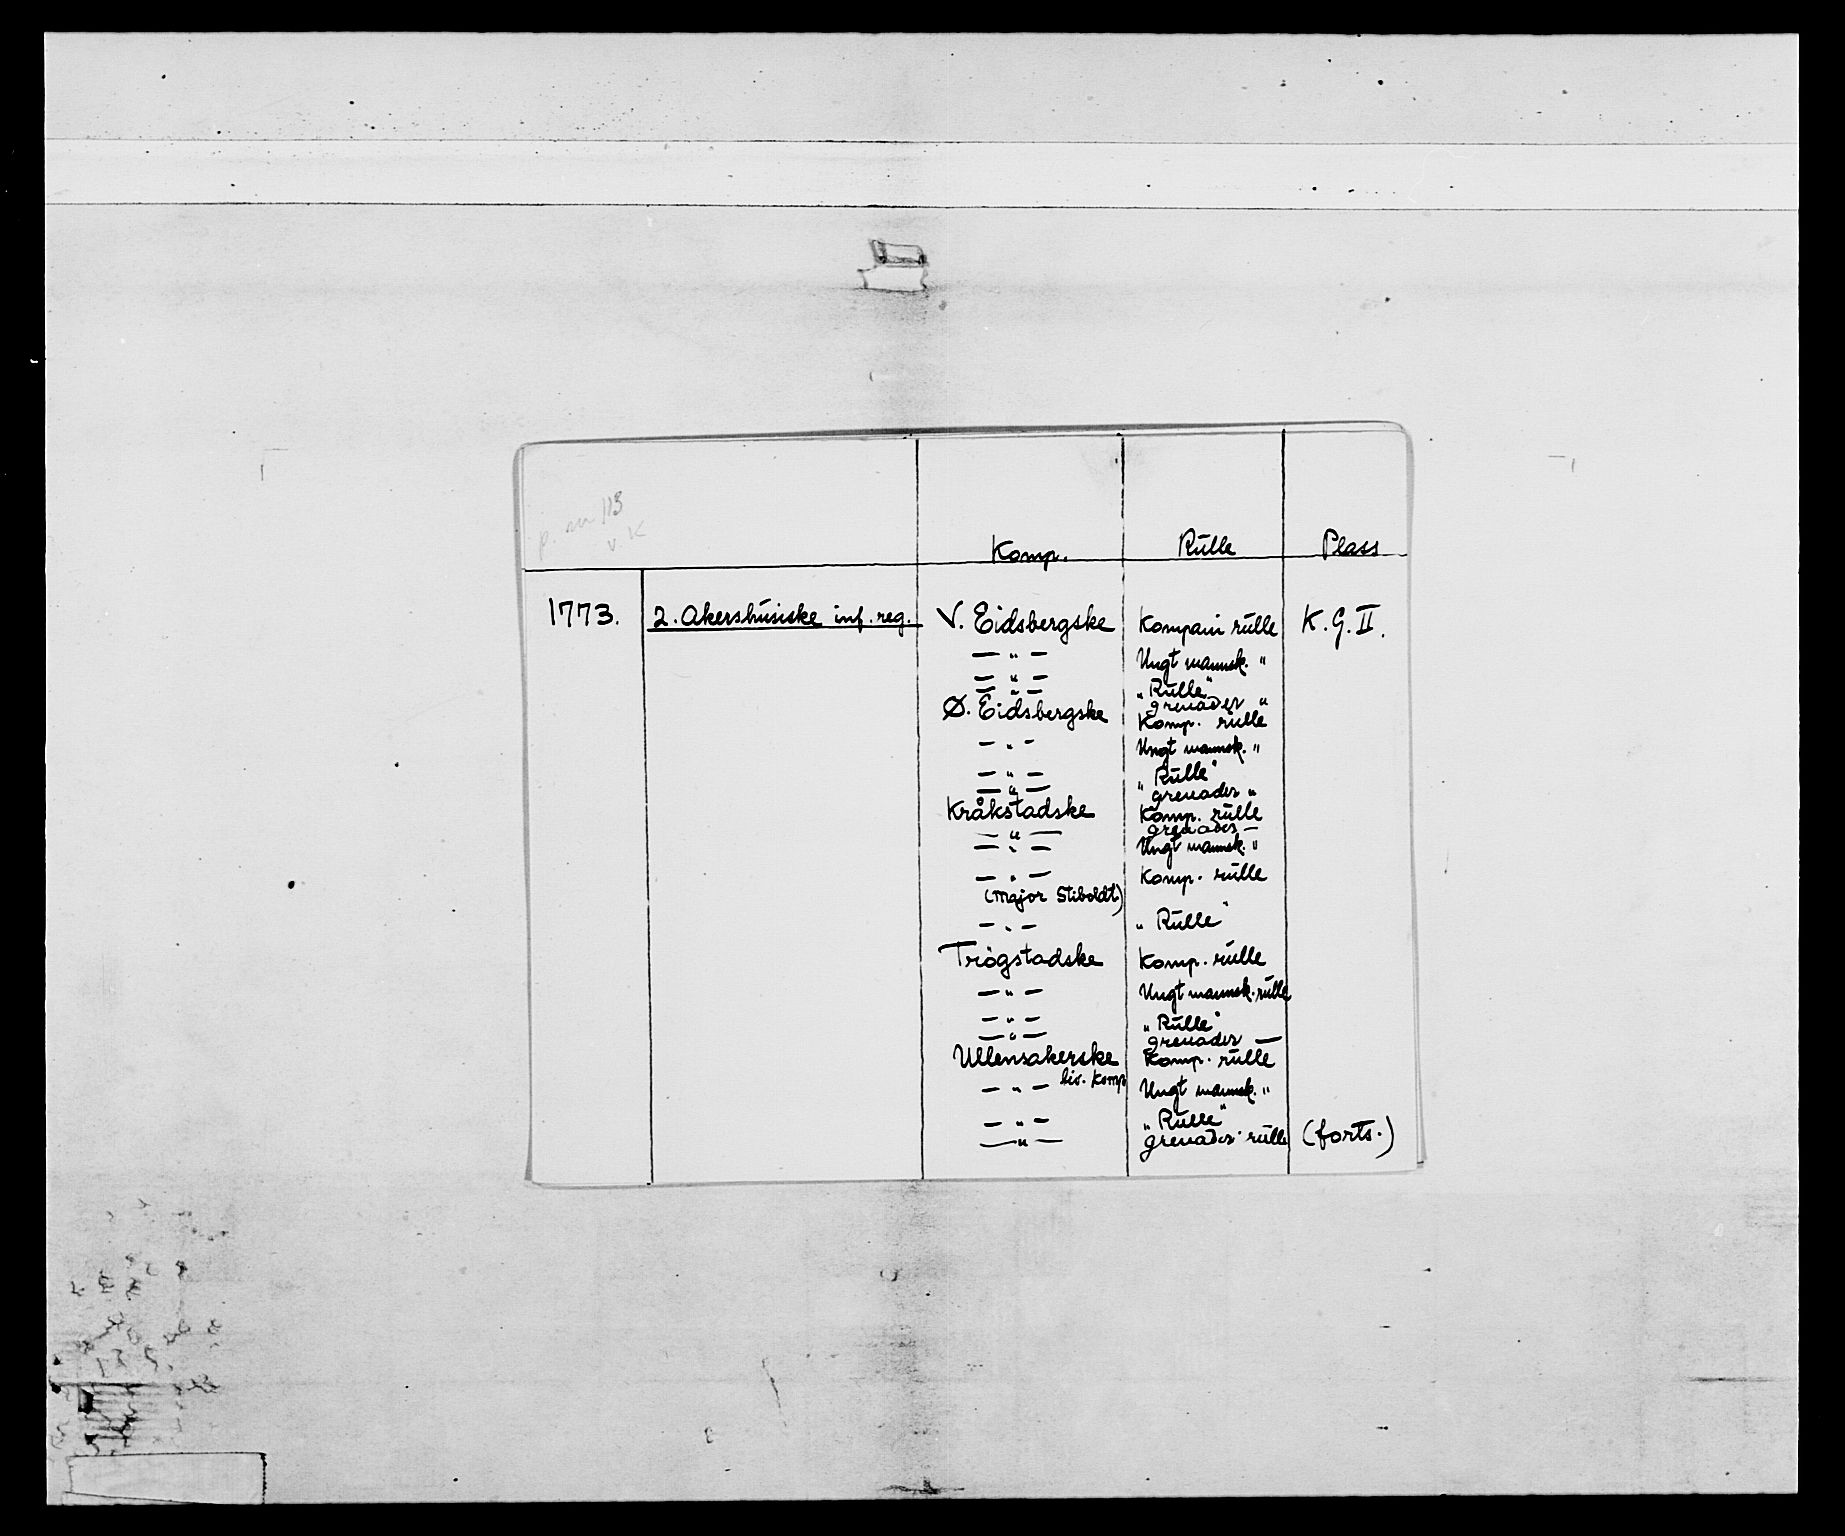 p. nr 113
v. K
Komp. Rulle Plass
1773. 2. Akershusiske inf. reg. V. Eidsbergske Kompani rulle K.G.II.
— " — Ungt mannsk. "
— " — " Rulle "
— " — grenader "
Ø. Eidsbergske Komp. rulle
— " — Ungt mannsk. "
— " — " Rulle "
— " — " grenader "
Kråkstadske Komp. rulle
— " — grenader —
— " — Ungt mannsk. "
— " — Komp. rulle
(Major Stiboldt)
— " — " Rulle "
Trøgstadske Komp. rulle
— " — Ungt mannsk. rulle
— " — " Rulle "
— " — grenader —
Ullensakerske Komp. rulle
— " — liv. komp Ungt mannsk. "
— " — " Rulle "
— " — grenader rulle (forts.)